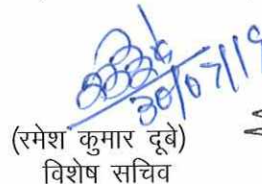 30/07/19
(रमेश कुमार दूबे)
विशेष सचिव